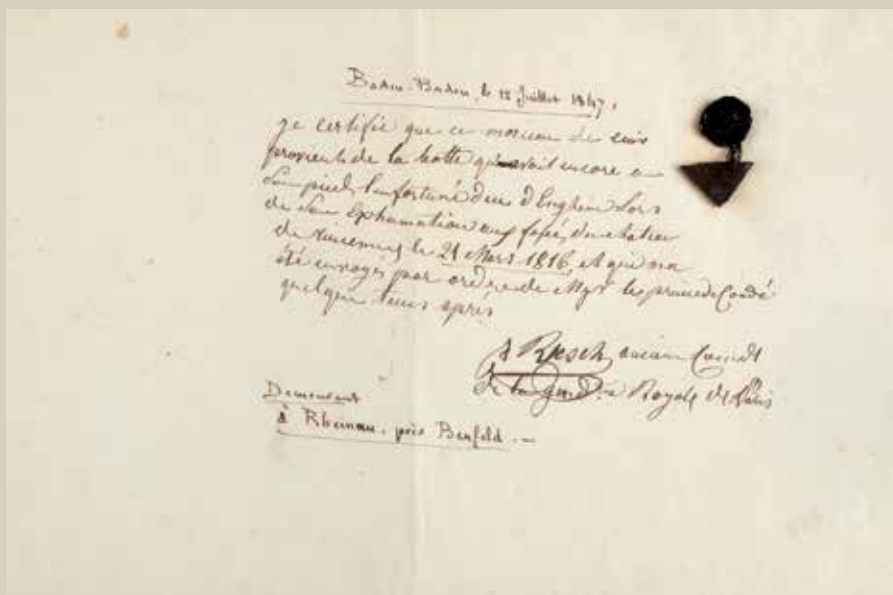 Baden-Baden, le 12 Juillet 1847,
je certifie que ce morceau de cuir
provient de la botte qu'avait encore au
Son pied, l'infortuné duc d'Enghien Lors
de Son Exhumation aux fossés du chateau
de Vincennes le 21 Mars 1816, et qui m'a
été envoyé par ordre de Mgr le prince de Condé
quelque tems après
Resch, ancien Comdt
de la Royale de Paris
Demeurant
à Rheinau, près Benfeld. —